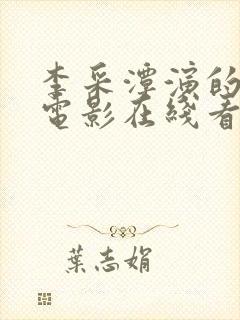 李采潭演的
電影在綫看
葉志娟